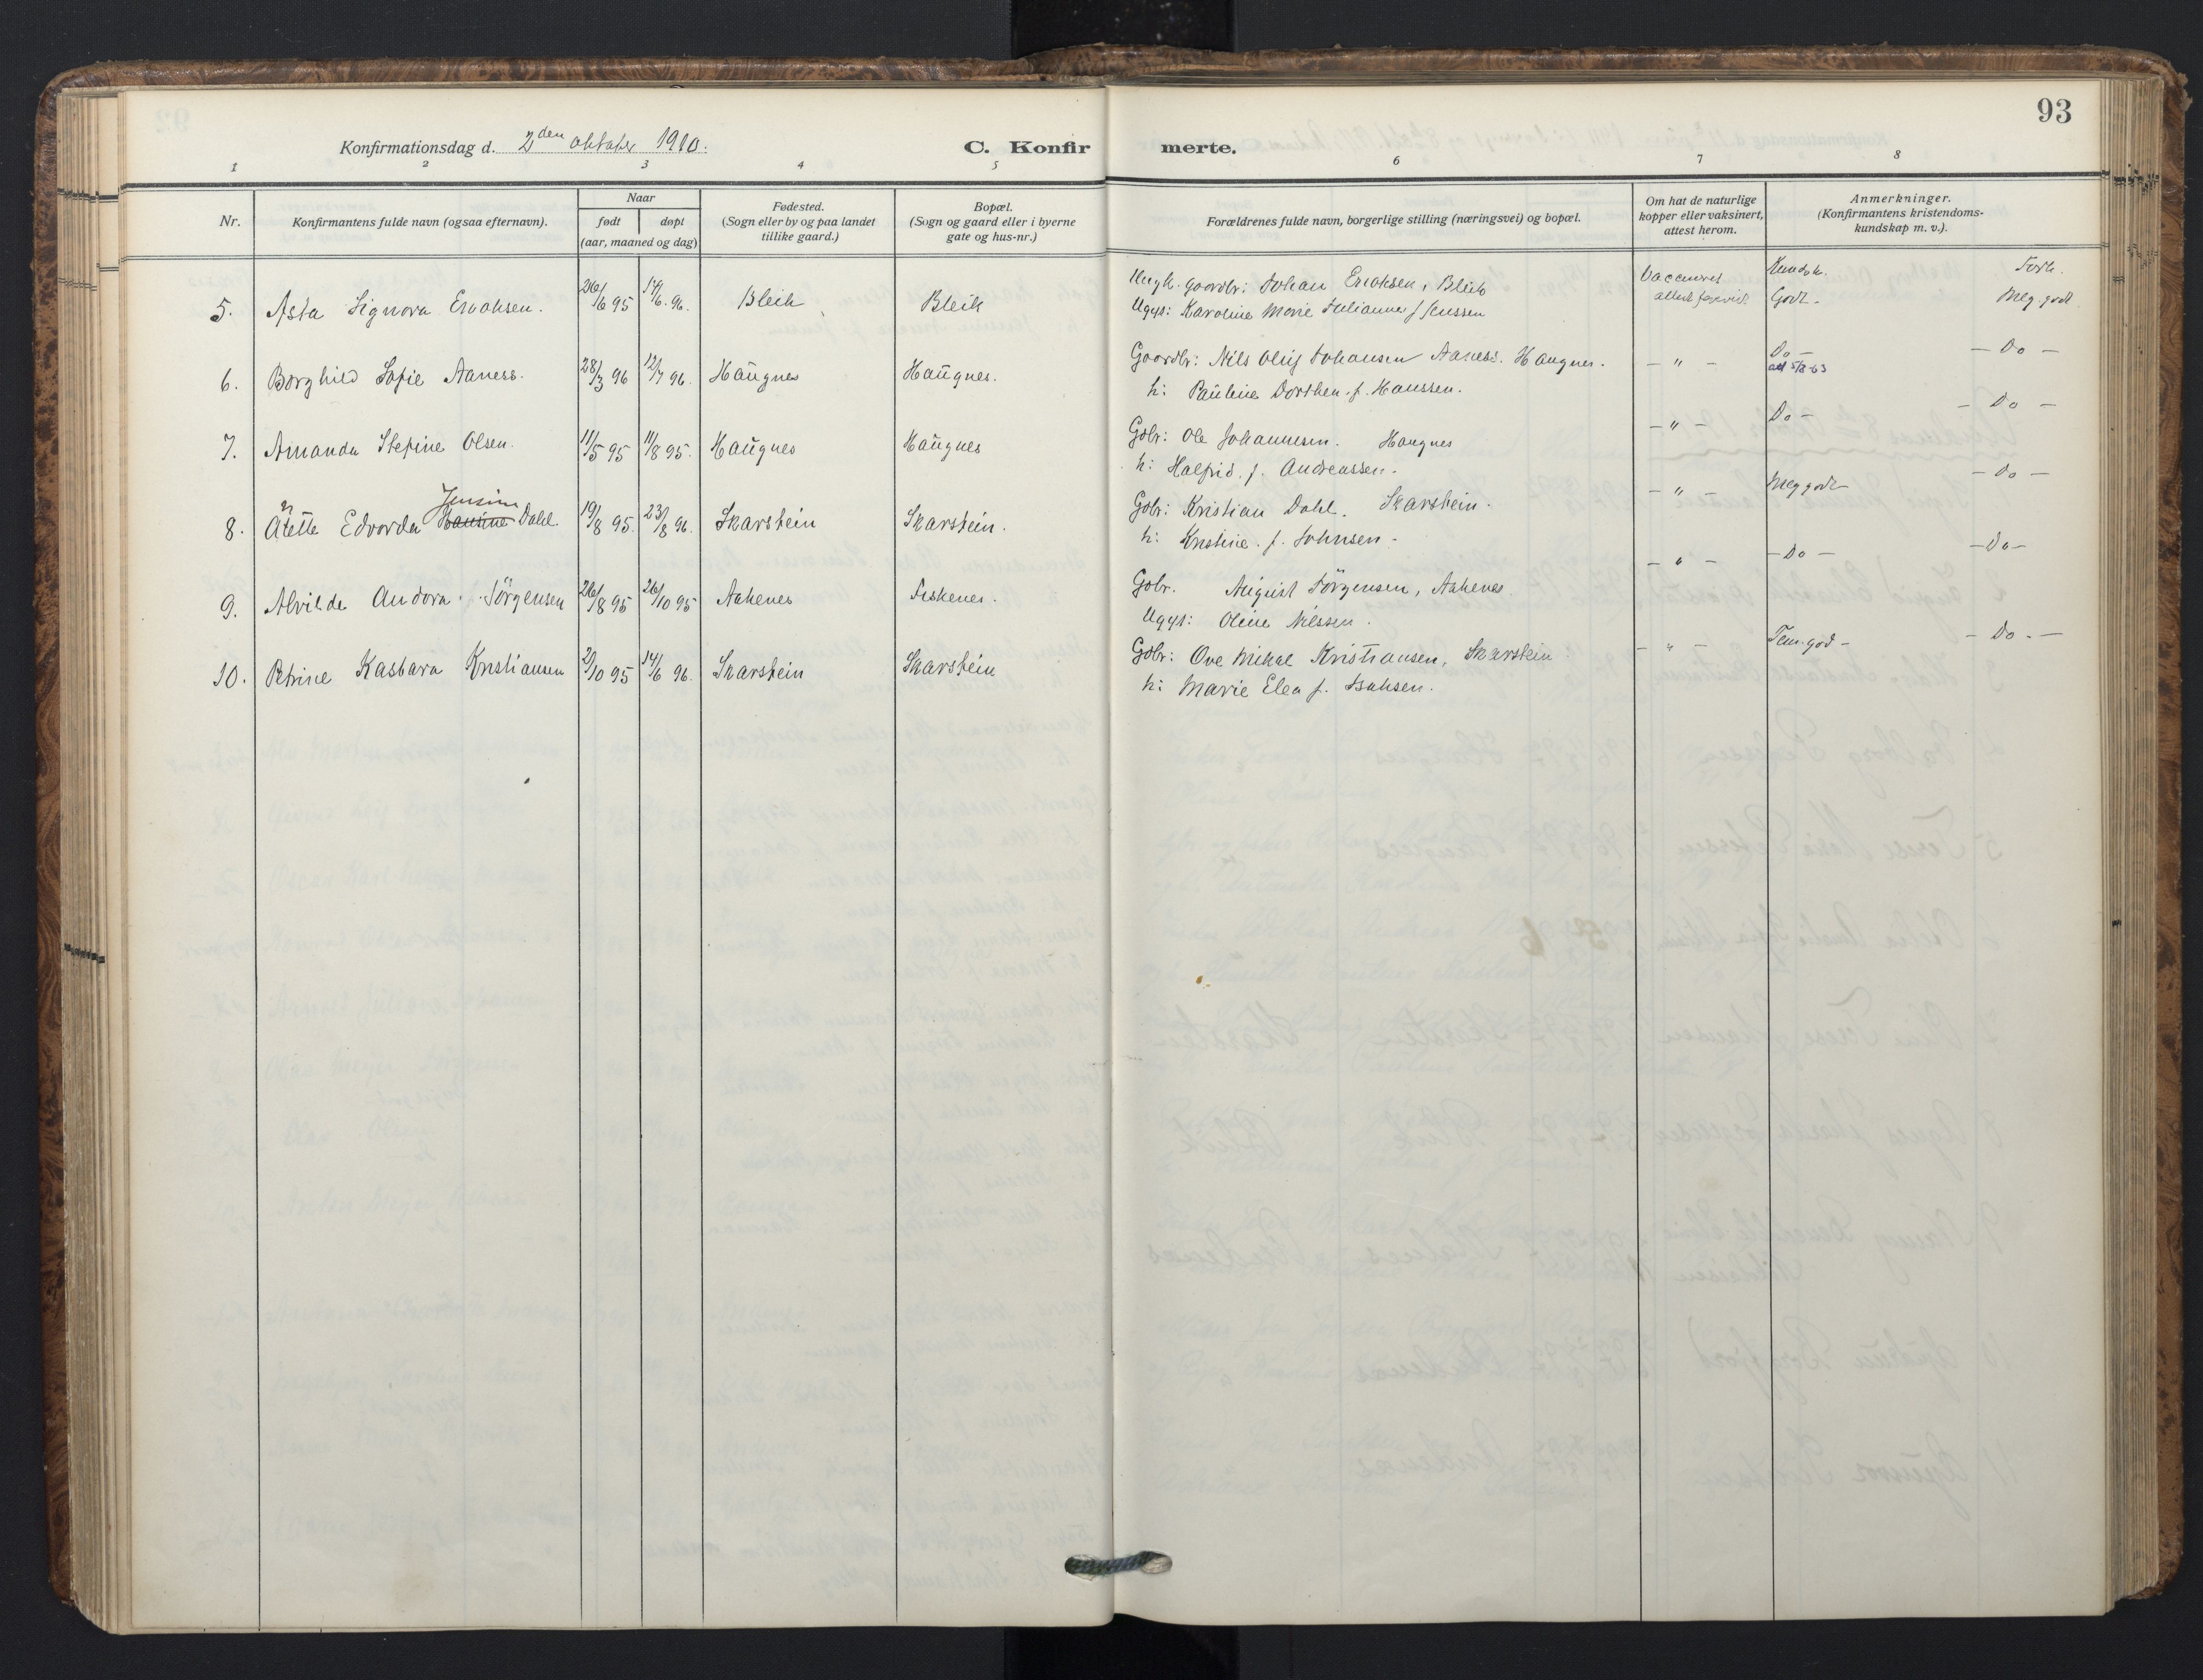 93
Konfirmationsdag d. 2den oktober 1910.
C. Konfirmerte.
1 2 3 4 5 6 7 8
Nr.
Konfirmantens fulde navn (ogsaa efternavn).
Naar
født døpt
(aar, maaned og dag)
Fødested.
(Sogn eller by og paa landet
tillike gaard.)
Bopæl.
(Sogn og gaard eller i byerne
gate og hus-nr.)
Forældrenes fulde navn, borgerlige stilling (næringsvei) og bopæl.
Om hat de naturlige
kopper eller vaksinert,
attest herom.
Anmerkninger.
(Konfirmantens kristendoms-
kundskap m. v.).
Kundsk. Forh.
5. Asta Signora Erichsen. 26/6 95 14/6. 96. Bleik Bleik Ungk. gaardbr: Johan Erichsen, Bleik Vaccineret Godt - Meg godt
Ugys: Karoline Marie Julianne f Jenssen attest forevist
6. Borghild Sofie Aaness. 28/3 96 12/7 96. Haugnes Haugnes. Gaardbr: Nils Oluf Johansen Aaness. Haugnes. - " - Do - - Do -
h: Pauline Dorthea. f. Hanssen. att 5/8-63
7. Amanda Stefine Olsen. 11/5 95 11/8 95. Haugnes Haugnes Gbr: Ole Johannesen. Haugnes - " - Do - - Do -
h: Halfrid. f. Andreassen.
8. Anette Edvarda Hansine Jensine Dahl. 19/8 95. 23/8 96. Skarstein Skarstein. Gbr: Kristian Dahl. Skarstein. - " - Meg godt - Do -
h: Kristine. f. Johnsen -
9. Alvilde Andora Jörgensen 26/8 95 26/10 95 Aakenes Fiskenes. Gbr. August Jörgensen, Aakenes - " - - Do - - Do -
Ugys: Oline Nilssen.
10. Petrine Kasbara Kristiansen 29/10 95 14/6 96. Skarstein Skarstein Gbr: Ove Mikal Kristiansen, Skarstein - " - Tem. god - - Do. -
h: Marie Elea f. Isaksen.